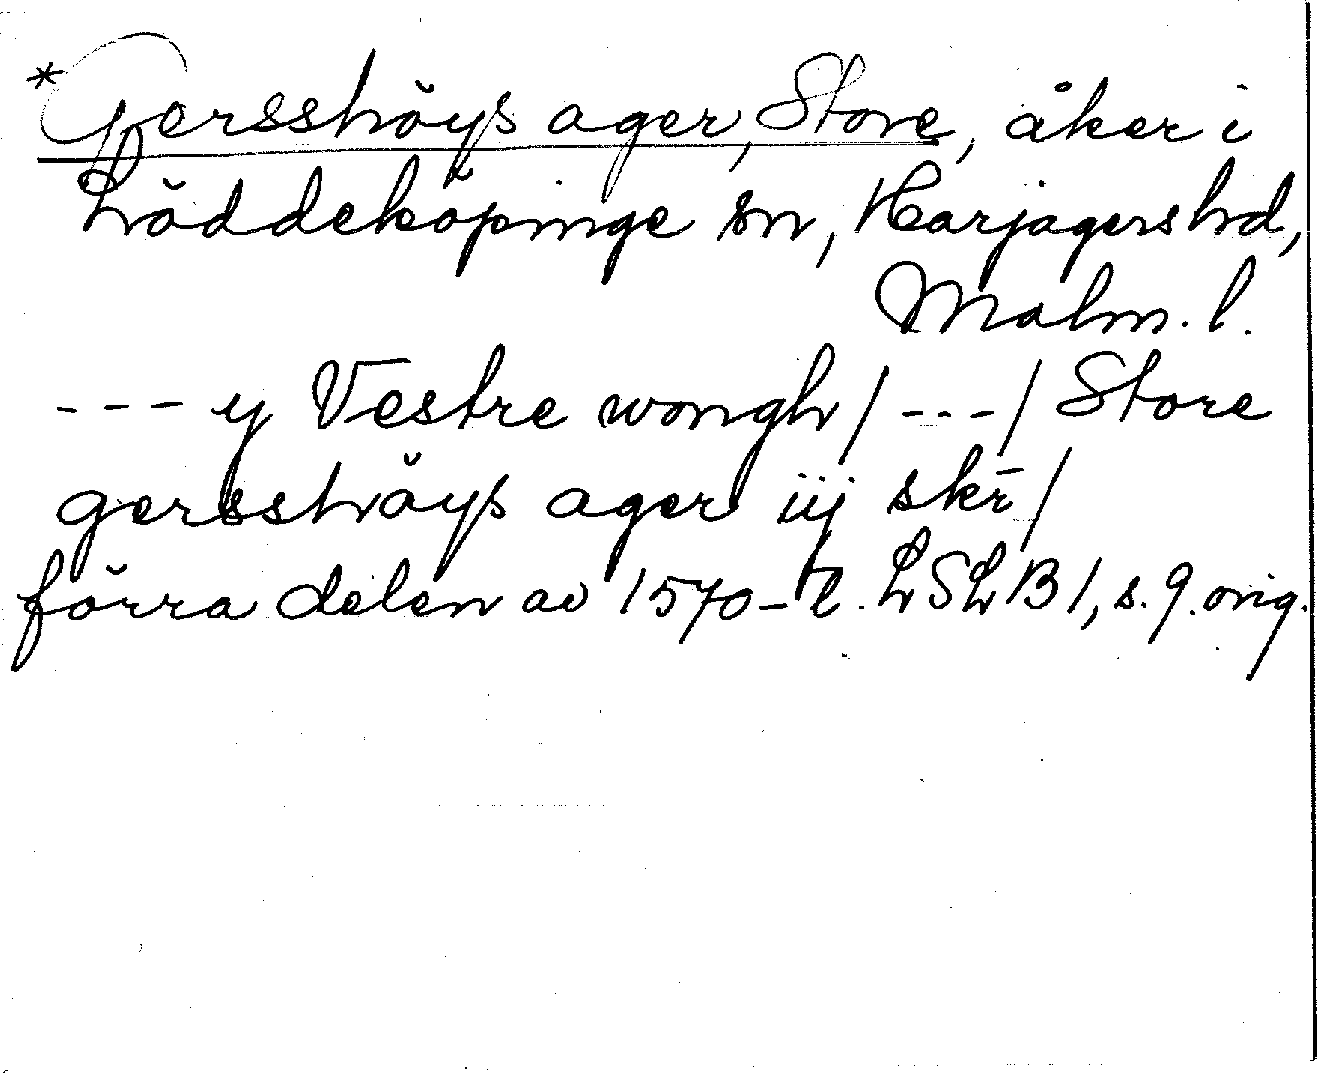 *Gersshöys ager, Store, åker i
Löddeköpinge sn, Harjagers hd,
Malm. l.
--- y Vestre wongh / --- / Store
gersshöys ager iij skr̄ /
förra delen av 1570-t. LSLB 1, s. 9. orig.